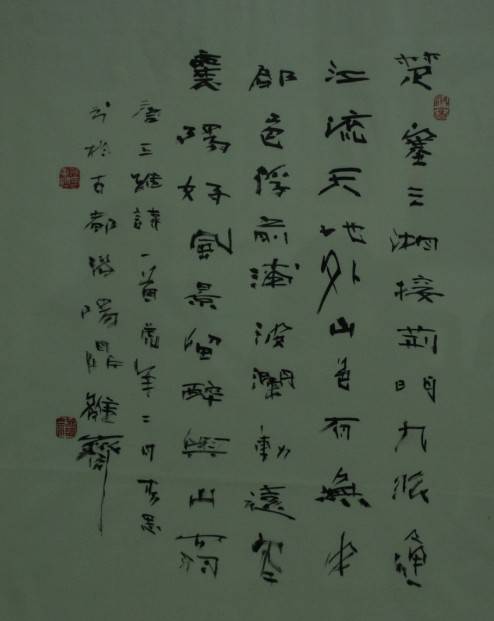 楚塞三湘接荊門九派通
江流天地外山色有無中
郡邑浮前浦波瀾動遠空
襄陽好風景留醉與山翁
唐王維詩一首虎年二月
书於古都洛陽齋